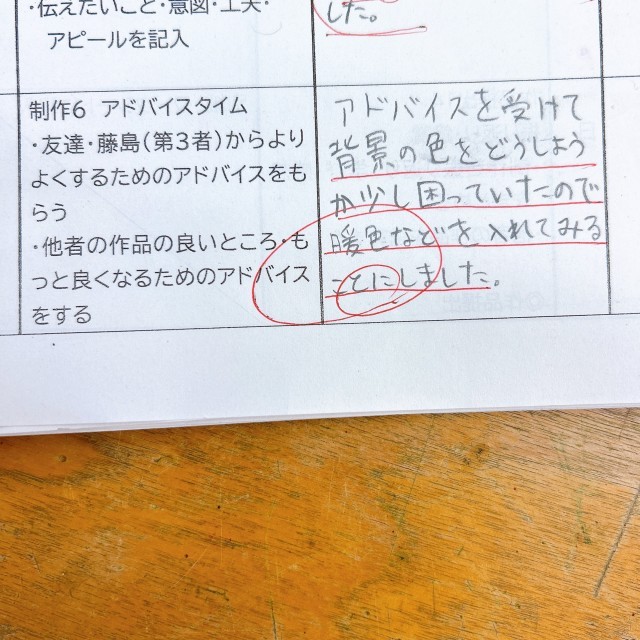 ・伝えたいこと・意図・工夫・
アピールを記入
した。
制作6 アドバイスタイム
・友達・藤島(第3者)からより
よくするためのアドバイスをも
らう
・他者の作品の良いところ・も
っと良くなるためのアドバイス
をする
アドバイスを受けて
背景の色をどうしよう
か少し困っていたので
暖色などを入れてみる
ことにしました。